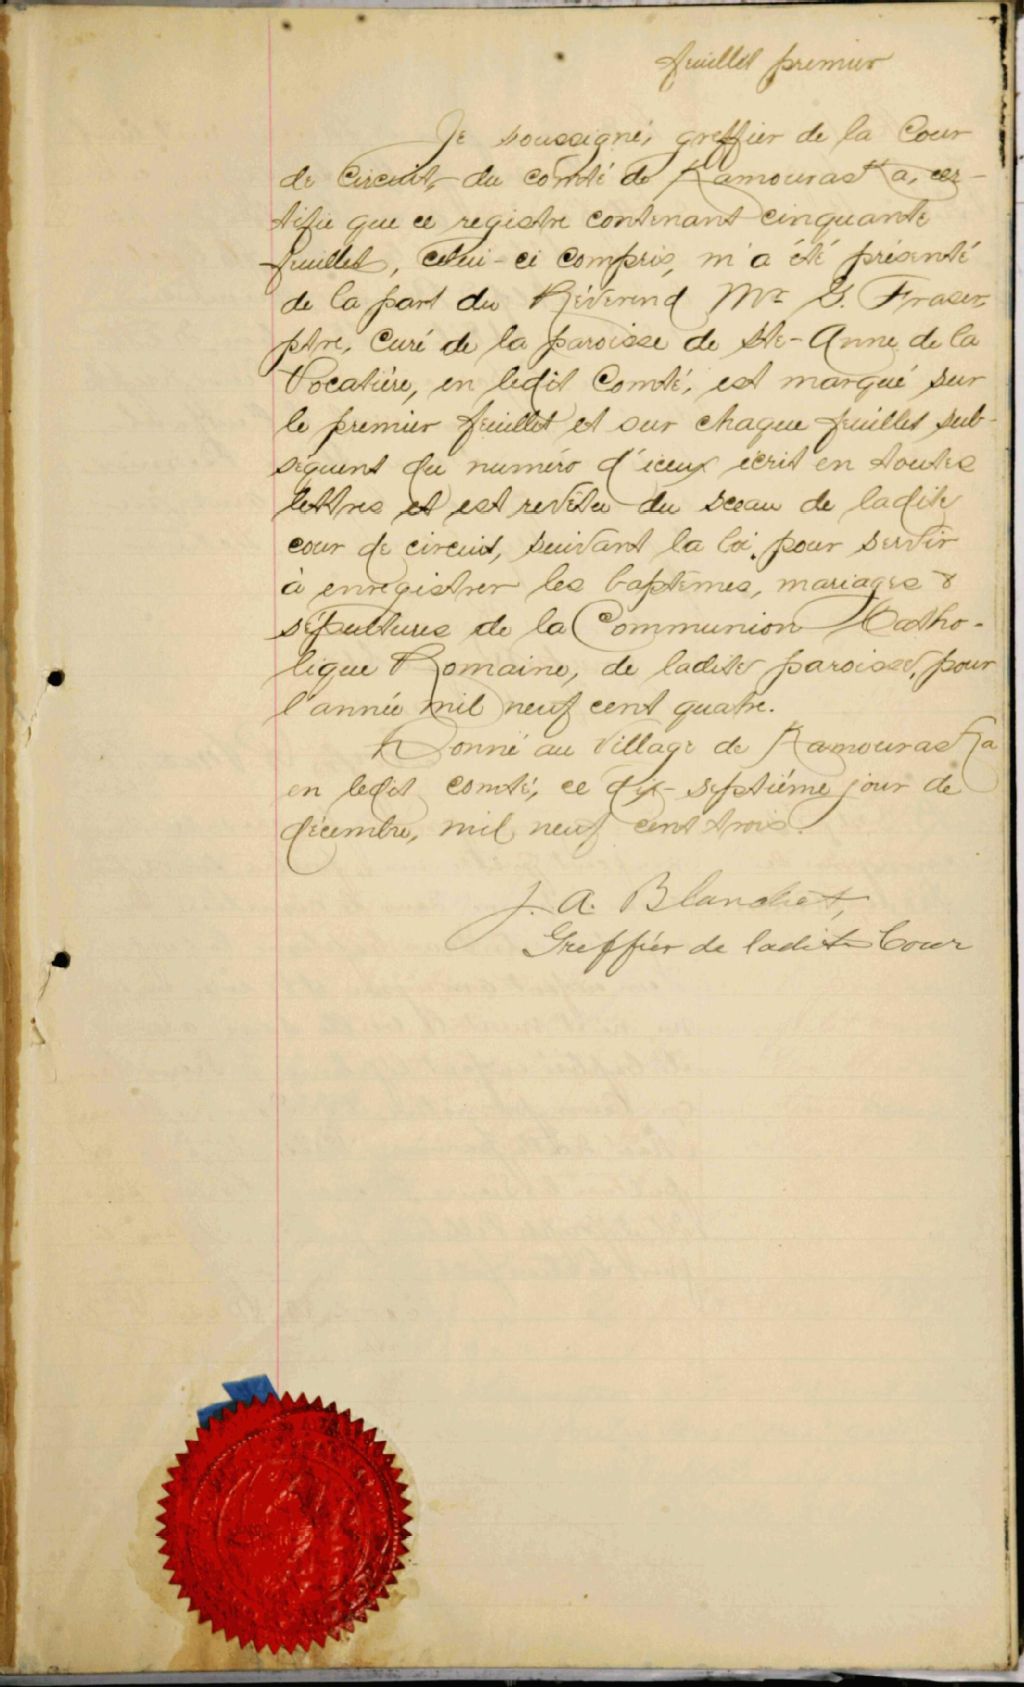 feuillet premier
Je soussigné, greffier de la Cour
de Circuit, du comté de Kamouraska, cer-
tifie que ce registre contenant cinquante
feuillets, celui-ci compris, m'a été présenté
de la part du Révérend Mr. G. Fraser,
ptre, Curé de la paroisse de Ste-Anne de la
Pocatière, en ledit Comté, est marqué sur
le premier feuillet et sur chaque feuillet sub-
séquent du numéro d'iceux écrit en toutes
lettres et est revêtu du sceau de ladite
cour de circuit, suivant la loi, pour servir
à enregistrer les baptêmes, mariages &
sépultures de la Communion Catho-
lique Romaine, de ladite paroisse, pour
l'année mil neuf cent quatre.
Donné au Village de Kamouraska
en ledit comté, ce dix-septième jour de
décembre, mil neuf cent trois.
J. A. Blanchet,
Greffier de ladite Cour